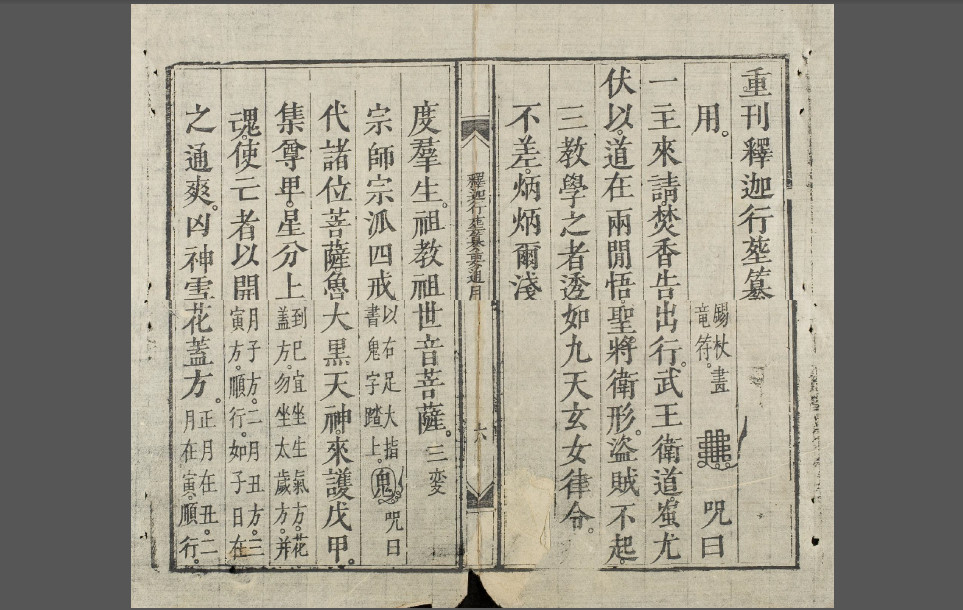 重刊釋迦行塟纂
用。錫杖畫
竜符。
咒曰
一主來請。焚香告出行。武王衛道。蚩尤
伏以。道在兩閒悟。聖將衛形。盜賊不起。
三教學之者透如九天玄女律令。
不差。炳炳爾淺
釋迦行塟纂要通用
六
度羣生。祖教祖世音菩薩。三変
宗師宗派四戒以右足大指
書鬼字踏上。鬼
咒曰
代諸位菩薩魯大黑天神。來護戊甲。
集尊甲。星分上到巳宜坐生氣方。花
蓋方。勿坐太歲方。并
魂。使亡者以開月子方。二月丑方。三
寅方。順行。如子日在
之通爽。凶神雪花蓋方。正月在丑。二
月在寅。順行。